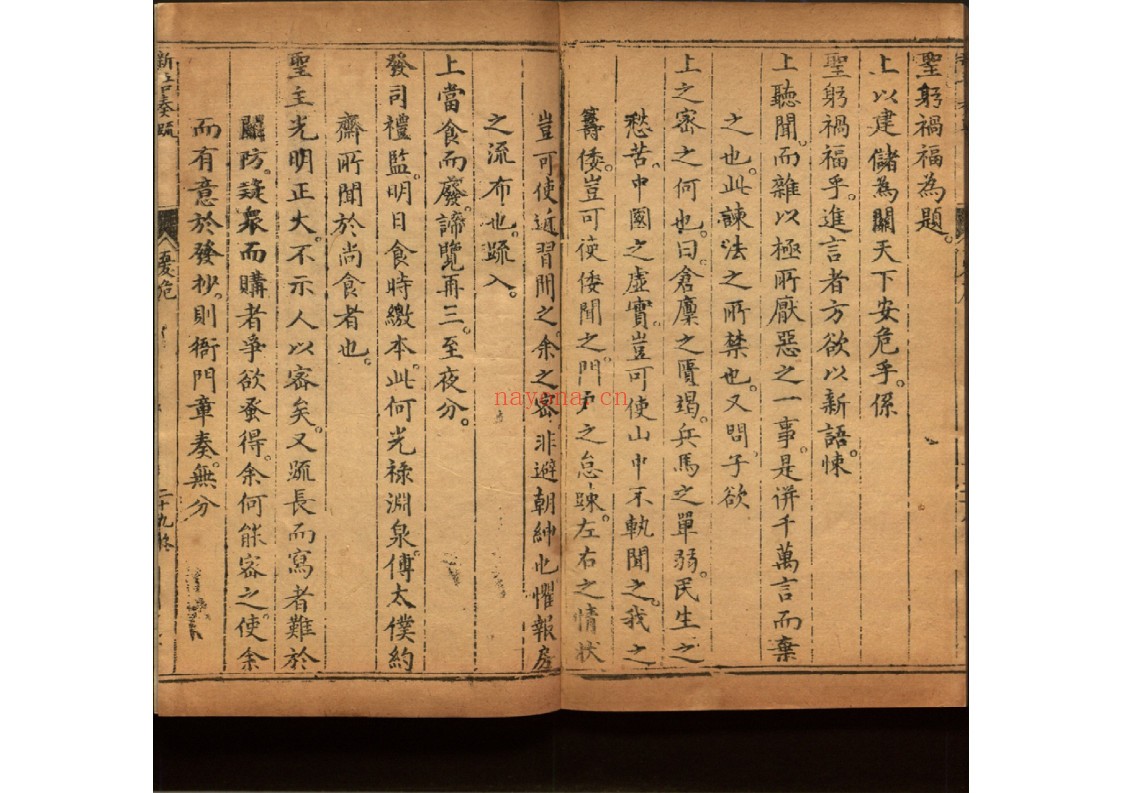 聖躬禍福為題。
上以建儲為關天下安危乎。係
聖躬禍福乎。進言者方欲以新語悚
上聽聞。而雜以極所厭惡之一事。是併千萬言而棄
之也。此諫法之所禁也。又問子欲
上之密之何也。曰。倉廩之匱竭。兵馬之單弱。民生之
愁苦。中國之虛實。豈可使山中不軌聞之。我之
籌倭。豈可使倭聞之。門戶之怠踈。左右之情狀
豈可使近習聞之。余之密非避朝紳也懼報房
之流布也。疏入。
上當食而廢。諦覽再三。至夜分。
發司禮監。明日食時繳本。此何光祿淵泉傅太僕約
齋所聞於尚食者也。
聖主光明正大。不示人以密矣。又疏長而寫者難於
關防。疑衆而購者爭欲蚤得。余何能密之。使余
而有意於發抄。則衙門章奏。無分
新吾奏疏
憂危
二十九終
nayona.cn